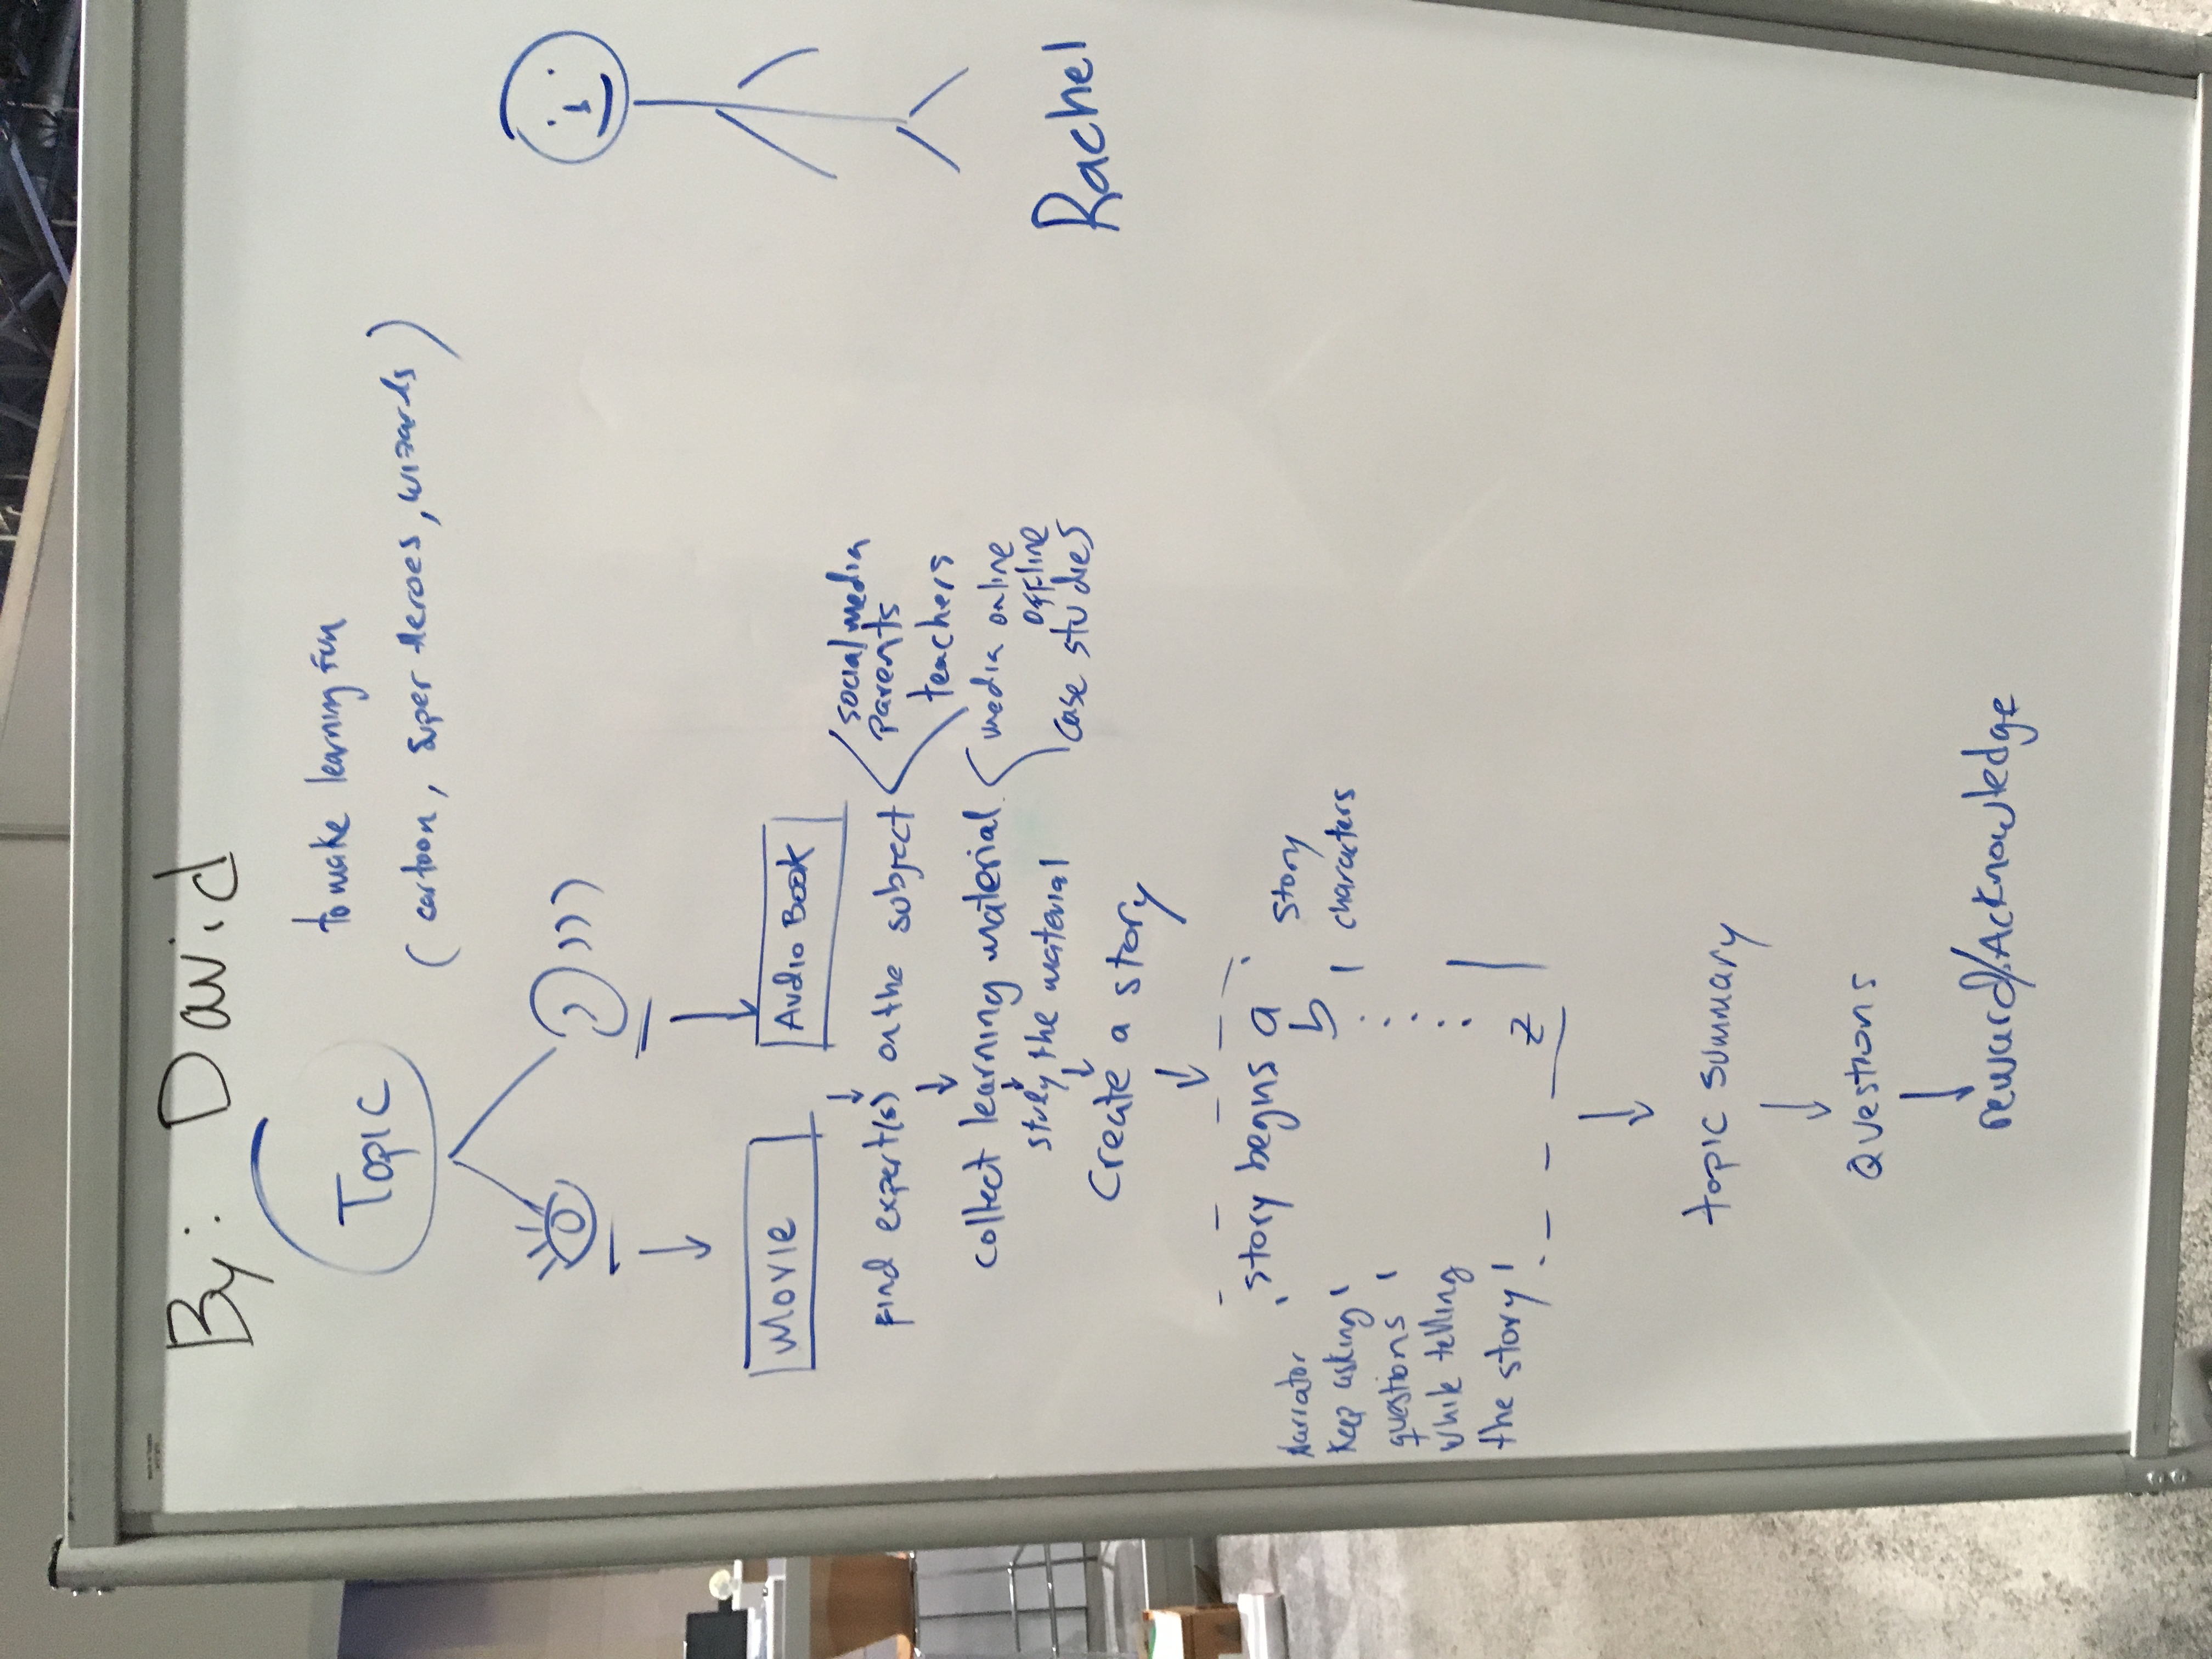 By: David
Topic
to make learning fun
(cartoon, super Heroes, wizards)
Movie
Audio Book
Find expert(s) on the subject
social media
parents
teachers
collect learning material
media online
offline
case studies
study the material
Create a story
story begins a
b
z
Narrator
keep asking
questions
while telling
the story
story
characters
topic summary
Questions
reward/Acknowledge
Rachel